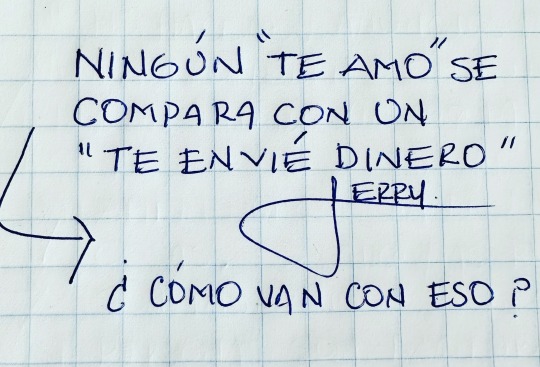 NINGÚN "TE AMO" SE
COMPARA CON UN
"TE ENVIÉ DINERO"
JERRY.
¿CÓMO VAN CON ESO?